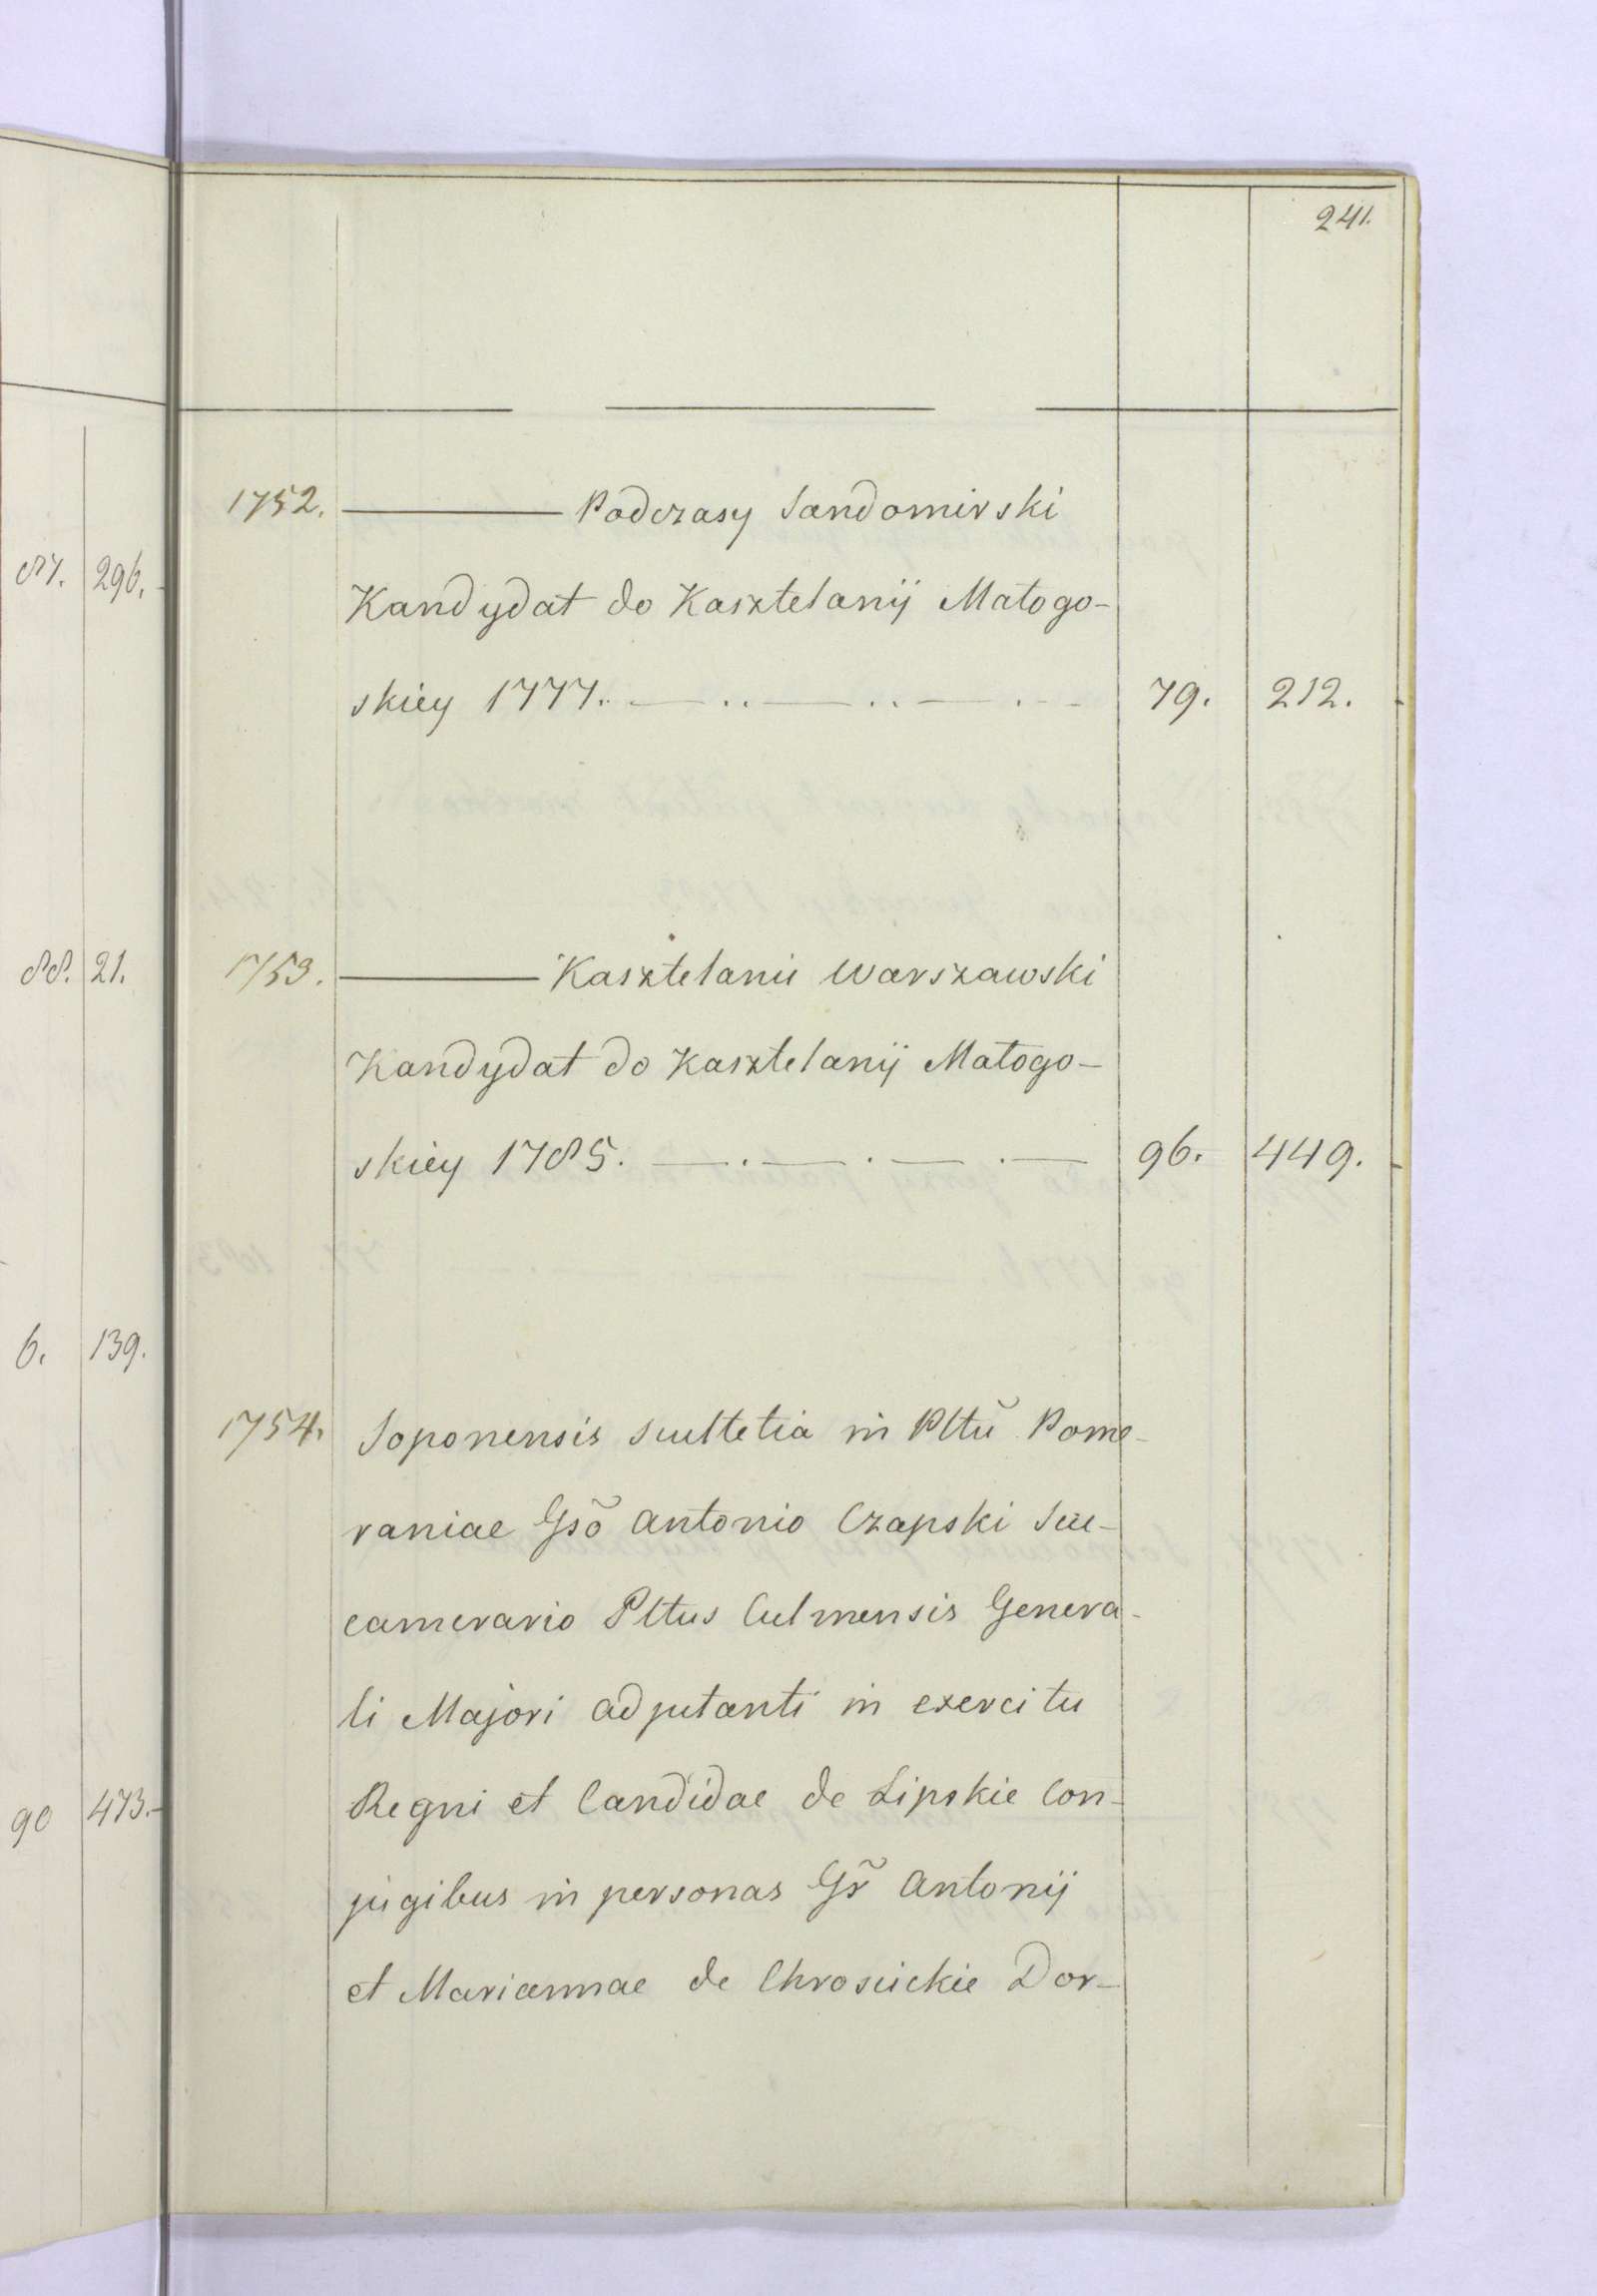 241.
1752. ——— Podczasy Sandomirski
Kandydat do Kasztelanij Małogo-
skiey 1777. 79. 212.
1753. ——— Kasztelanic Warszawski
Kandydat do Kasztelanij Małogo-
skiey 1785. 96. 449.
1754. Soponensis scultetia in Pltũ Pome-
raniae Gsõ Antonio Czapski Suc-
camerario Pltus Culmensis Genera-
li Majori adjutanti in exercitu
Regni et Candidae de Lipskie Con-
jugibus in personas Gr̃ Antonij
et Mariannae de Chroscickie Dor-
87. 296.
88. 21.
6. 139.
90 473.